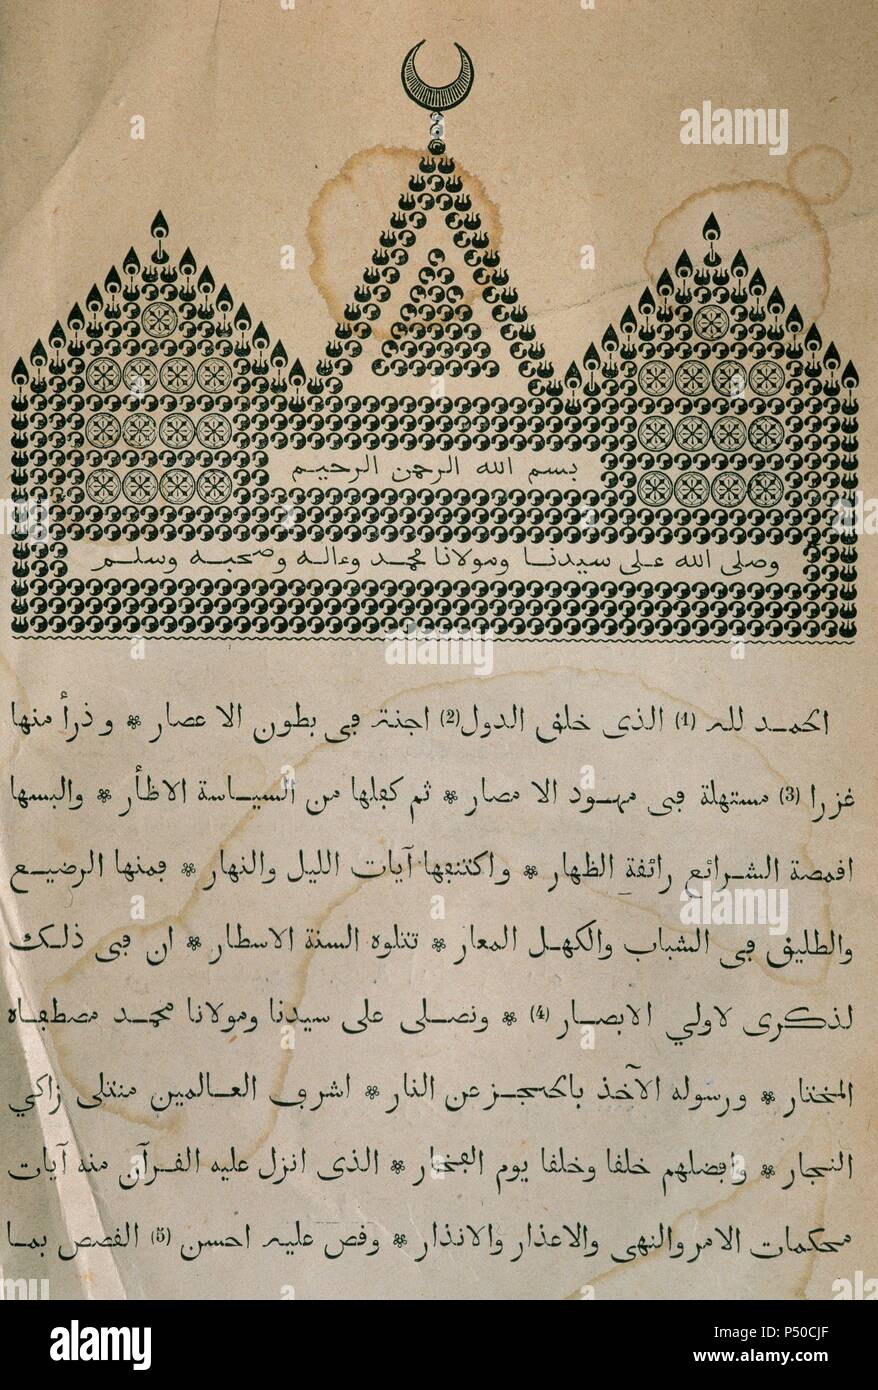 بسم الله الرحمن الرحيم
وصلى الله على سيدنا ومولانا محمد وءاله وصحبه وسلم
الحمد لله (1) الذى خلق الدول (2) اجنة فى بطون الاعصار * وذرأ منها
غزرا (3) مستهلة فى مهود الامصار * ثم كفلها من السياسة الاظأر * والبسها
اقمصة الشرائع رائقة الظهار * واكتنفها آيات الليل والنهار * فمنها الرضيع
والطليق فى الشباب والكهل المعار * تتلوه السنة الاسطار * ان فى ذلك
لذكرى لاولي الابصار (4) * ونصلى على سيدنا ومولانا محمد مصطفاه
المختار * ورسوله الآخذ بالحجز عن النار * اشرف العالمين منتلى زاكي
النجار * وافضلهم خلقا وخلقا يوم الفخار * الذى انزل عليه القرآن منه آيات
محكمات الامر والنهى والاعذار والانذار * وقص عليه احسن (5) القصص بما
alamy
a
alamy
Image ID: P50CJF
www.alamy.com